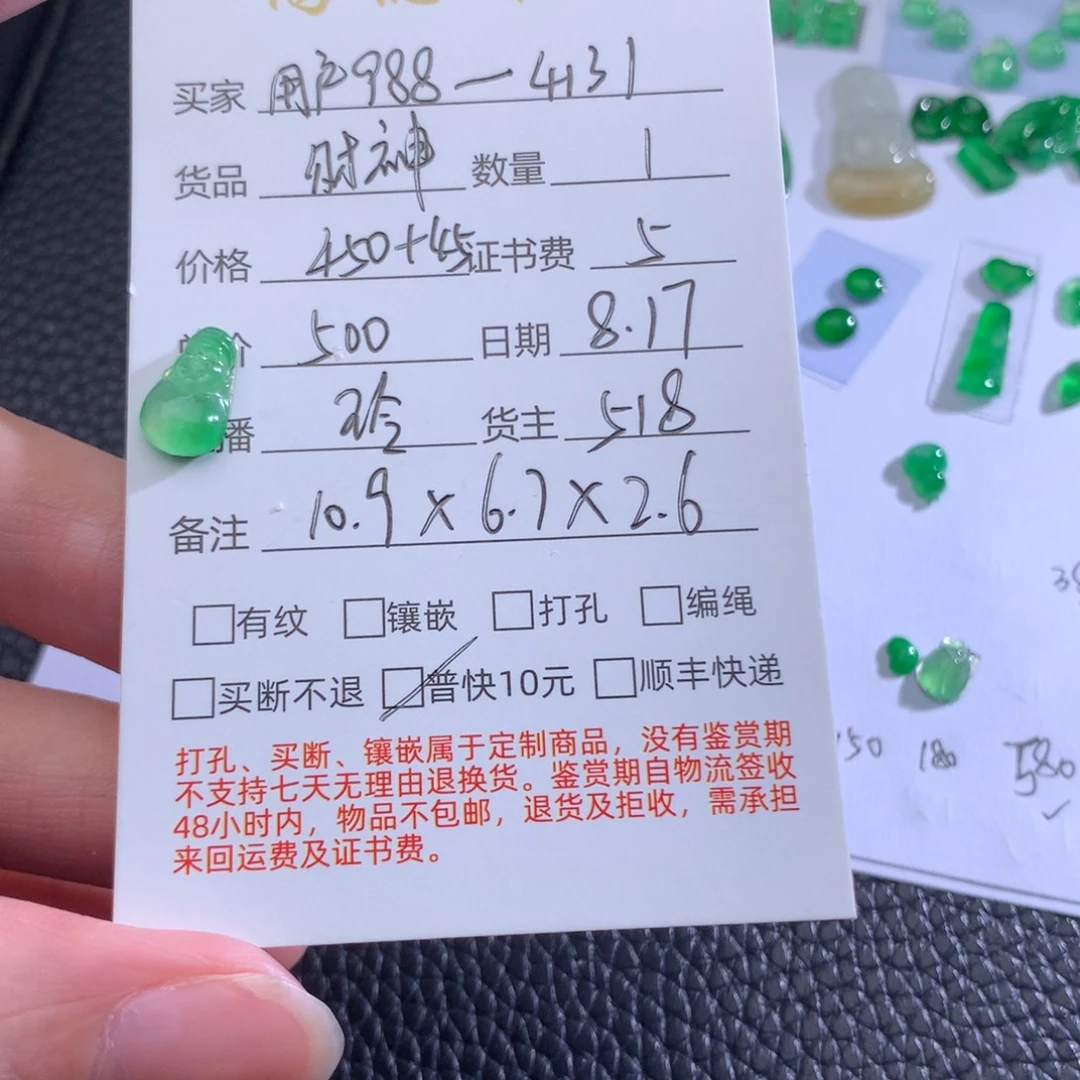 买家 用户988-4131
货品 财神 数量 1
价格 450+45 证书费 5
价 500 日期 8.17
播 玲 货主 518
备注 10.9×6.7×2.6
□有纹 □镶嵌 □打孔 □编绳
□买断不退 □普快10元 □顺丰快递
打孔、买断、镶嵌属于定制商品，没有鉴赏期
不支持七天无理由退换货。鉴赏期自物流签收
48小时内，物品不包邮，退货及拒收，需承担
来回运费及证书费。
38
150 180 580